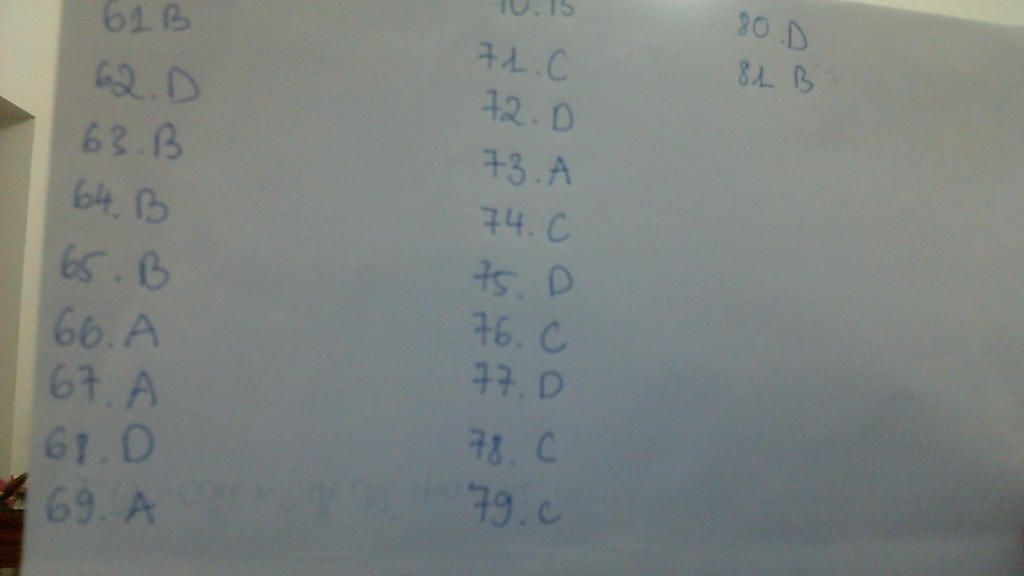 61 B
62. D
63. B
64. B
65. B
66. A
67. A
68. D
69. A
70. B
71. C
72. D
73. A
74. C
75. D
76. C
77. D
78. C
79. C
80. D
81 B